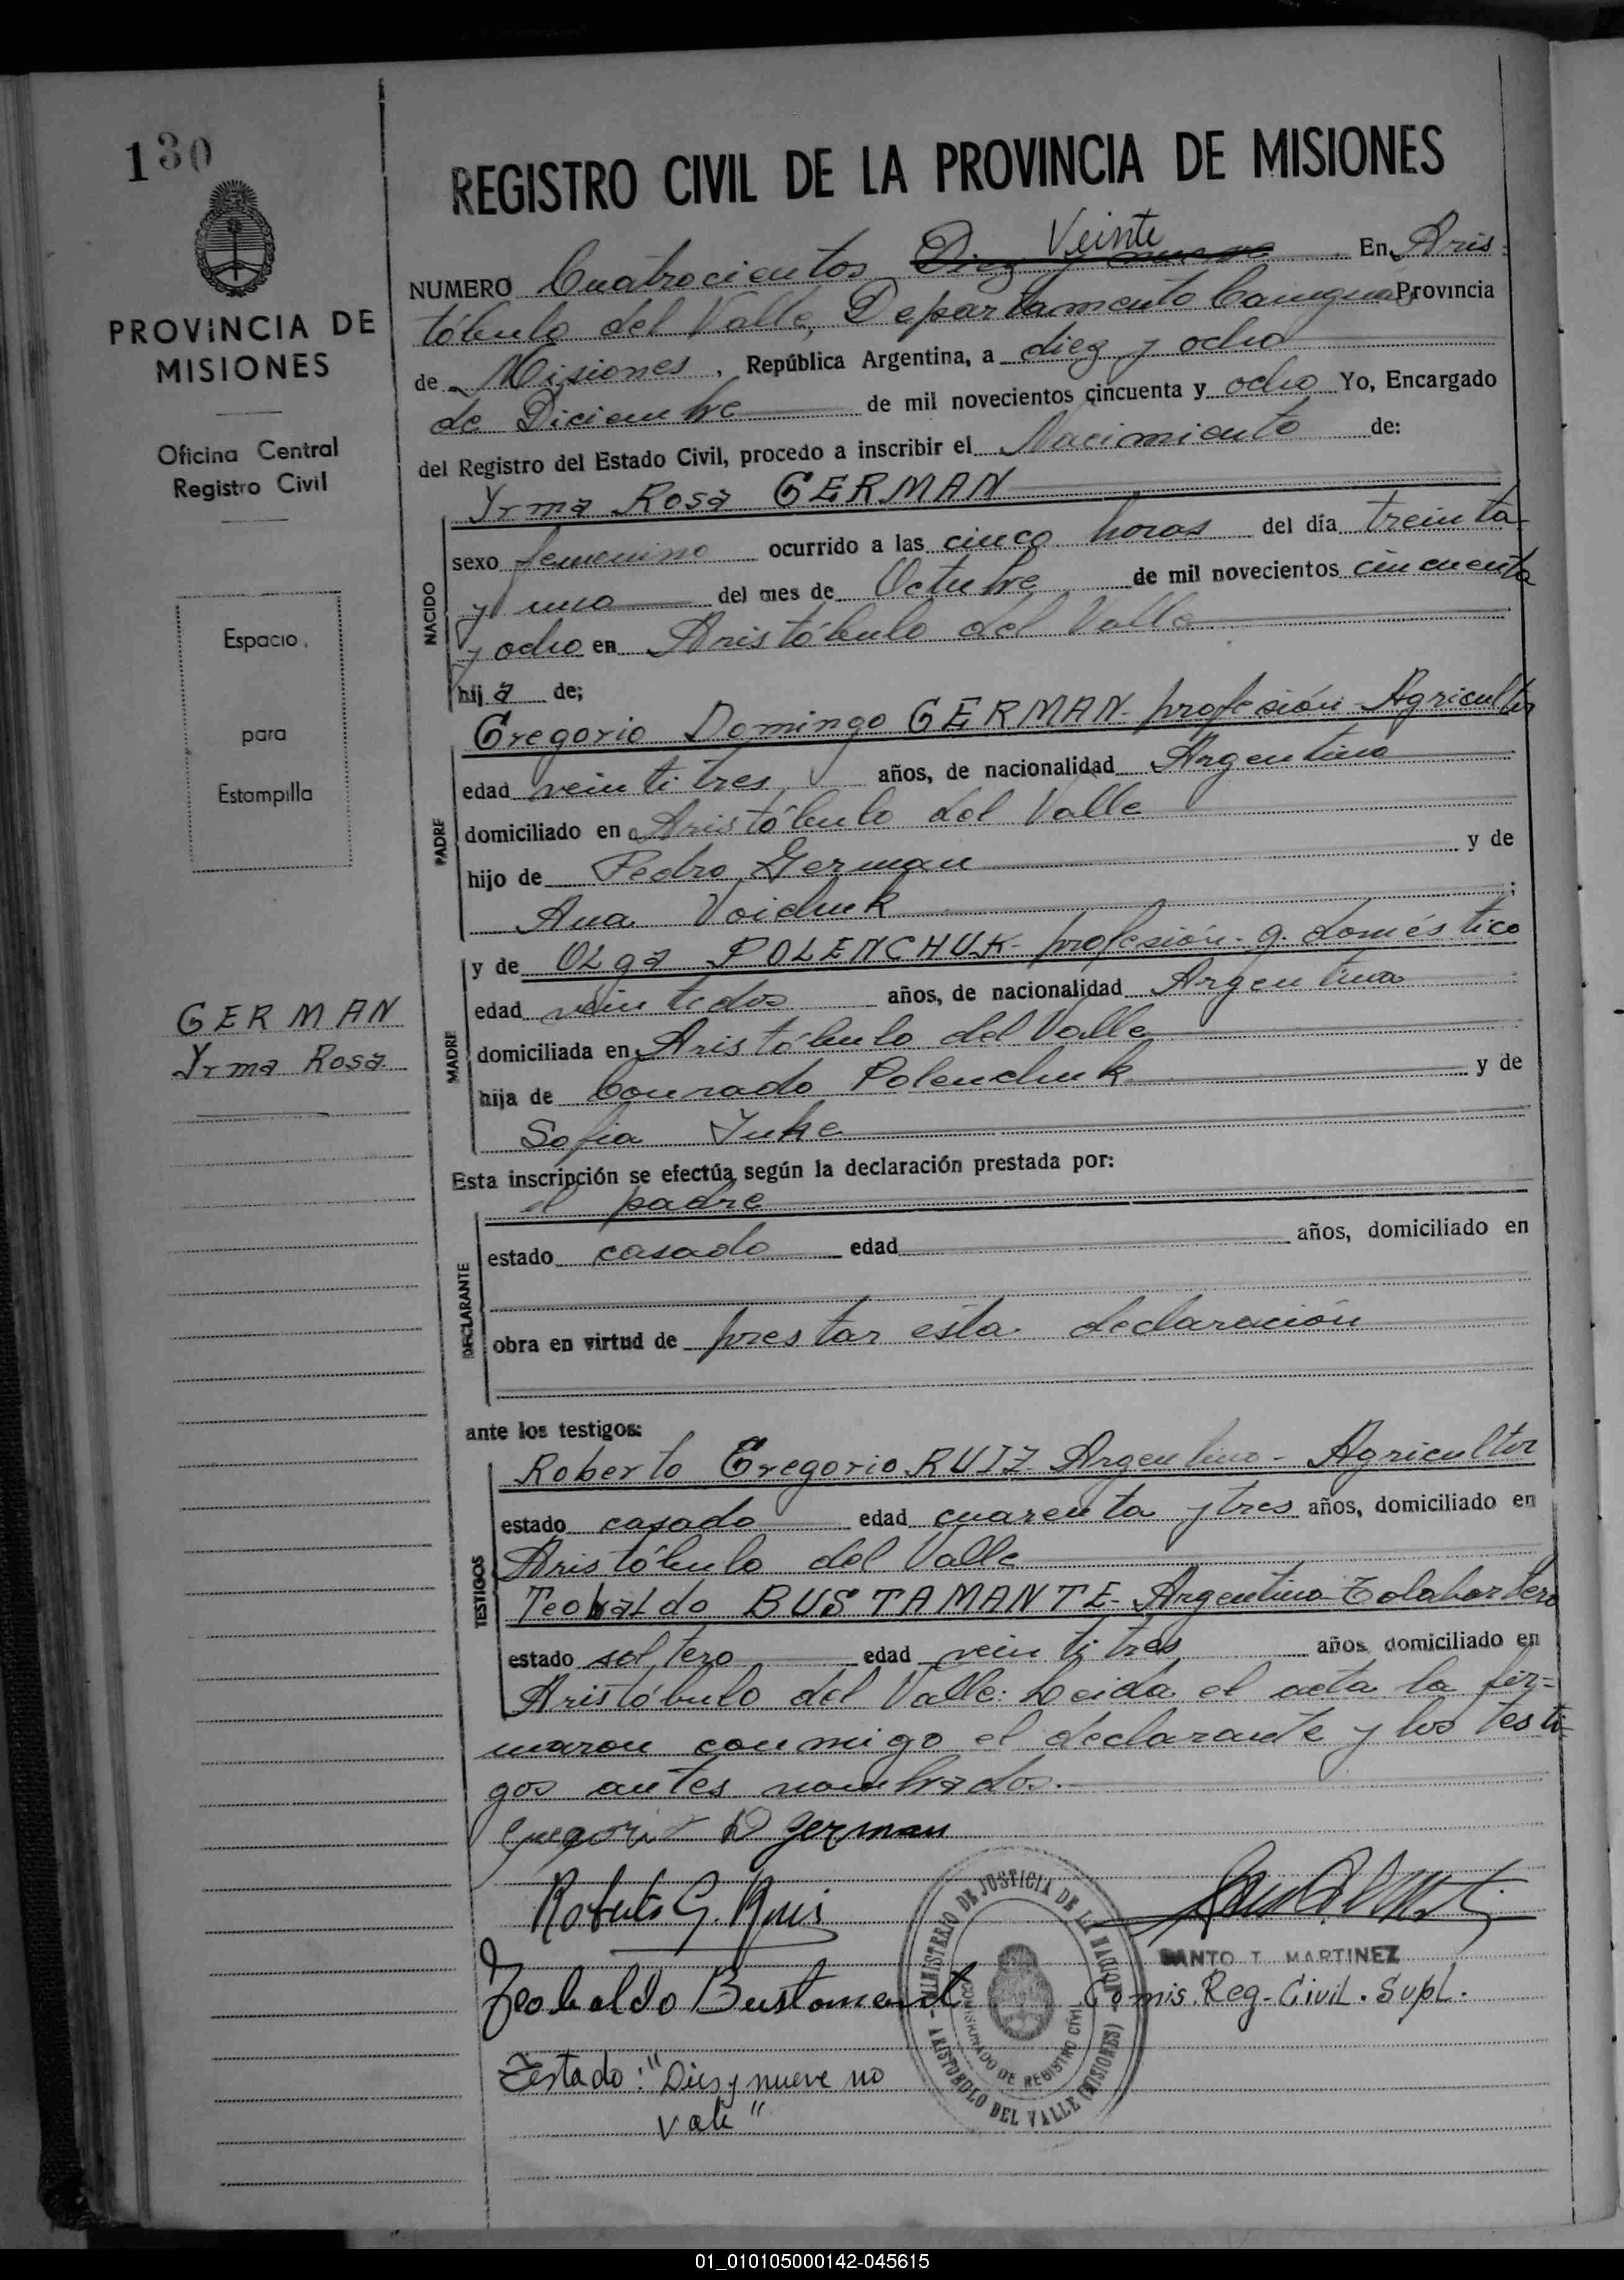 130
PROVINCIA DE
MISIONES
Oficina Central
Registro Civil
Espacio
para
Estampilla
GERMAN
Yrma Rosa
REGISTRO CIVIL DE LA PROVINCIA DE MISIONES
Veinte
NUMERO Cuatrocientos Diez y nueve En Aris-
tóbulo del Valle, Departamento Cainguás Provincia
de Misiones, República Argentina, a diez y ocho
de Diciembre de mil novecientos cincuenta y ocho Yo, Encargado
del Registro del Estado Civil, procedo a inscribir el Nacimiento de:
Yrma Rosa GERMAN
NACIDO
sexo femenino ocurrido a las cinco horas del día treinta
y uno del mes de Octubre de mil novecientos cincuenta
y ocho en Aristóbulo del Valle
hija de;
PADRE
Gregorio Domingo GERMAN- profesión-Agricultor
edad veintitres años, de nacionalidad Argentina
domiciliado en Aristóbulo del Valle
hijo de Pedro German y de
Ana Voichuk;
MADRE
y de OLga POLENCHUK- profesión- q. doméstico
edad veintidos años, de nacionalidad Argentina
domiciliada en Aristóbulo del Valle
hija de Conrado Polenchuk y de
Sofia
Esta inscripción se efectúa según la declaración prestada por:
el padre
DECLARANTE
estado casado edad años, domiciliado en
obra en virtud de prestar esta declaración
ante los testigos:
TESTIGOS
Roberto Gregorio RUIZ Argentino- Agricultor
estado casado edad cuarenta y tres años, domiciliado en
Aristóbulo del Valle
TeobaLdo BUSTAMANTE- Argentino-
estado soltero edad veintitres años domiciliado en
Aristóbulo del Valle. Leida el acta la fir=
maron conmigo el declarante y los testi-
gos antes nombrados.-
Gregorio D German
Roberto G. Ruis
SANTO T. MARTINEZ
Teobaldo Bustamante
Comis. Reg-Civil. Supl.
MINISTERIO DE JUSTICIA DE LA NACION
COMISIONADO DE REGISTRO CIVIL
ARISTOBULO DEL VALLE (MISIONES)
Testado: "Dies y nueve no
vale"
01_010105000142-045615